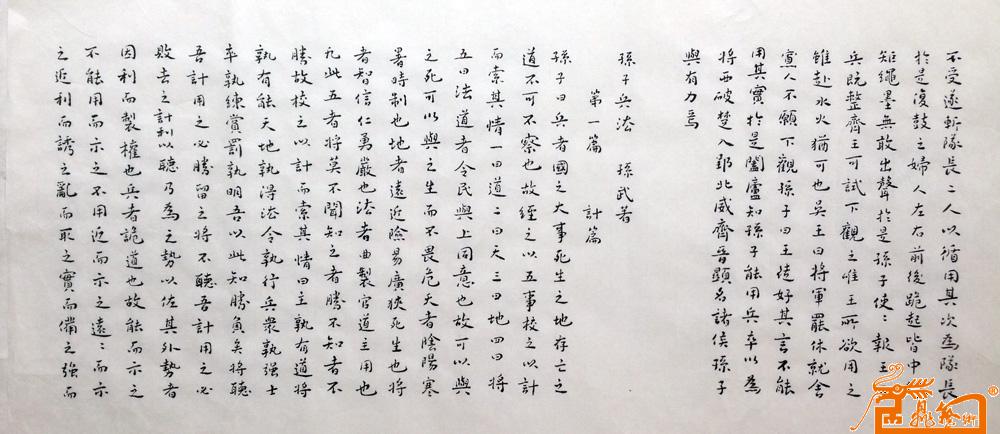 不受遂斬隊長二人以循用其次為隊長
於是復鼓之婦人左右前後跪起皆中
矩繩墨無敢出聲於是孫子使：報王
兵既整齊王可試下觀之唯王所欲用之
雖赴水火猶可也吳王曰將軍罷休就舍
寡人不願下觀孫子曰王徒好其言不能
用其實於是闔廬知孫子能用兵卒以為
將西破楚入郢北威齊晉顯名諸侯孫子
與有力焉
孫子兵法 孫武著
第一篇 計篇
孫子曰兵者國之大事死生之地存亡之
道不可不察也故經之以五事校之以計
而索其情一曰道二曰天三曰地四曰將
五曰法道者令民與上同意也故可以與
之死可以與之生而不畏危天者陰陽寒
暑時制也地者遠近險易廣狹死生也將
者智信仁勇嚴也法者曲製官道主用也
凡此五者將莫不聞知之者勝不知者不
勝故校之以計而索其情曰主孰有道將
孰有能天地孰得法令孰行兵衆孰強士
卒孰練賞罰孰明吾以此知勝負矣將聽
吾計用之必勝留之將不聽吾計用之必
敗去之計利以聽乃為之勢以佐其外勢者
因利而製權也兵者詭道也故能而示之
不能用而示之不用近而示之遠：而示
之近利而誘之亂而取之實而備之強而